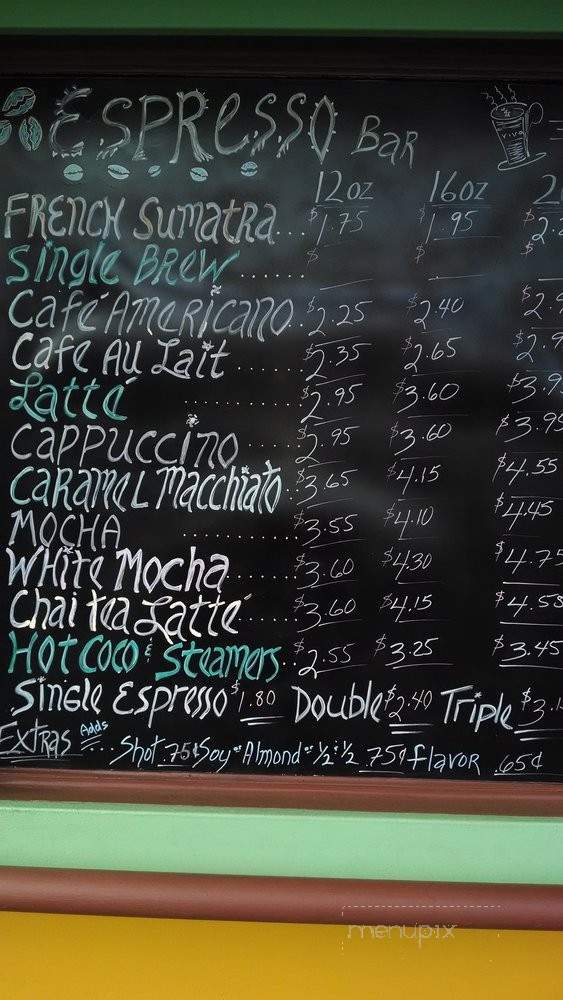 Espresso Bar
viva
12oz 16oz 2
French Sumatra... $1.75 $1.95 $2.
Single Brew ....... $ $ $
Café Americano.. $2.25 $2.40 $2.9
Cafe Au Lait ........ $2.35 $2.65 $2.9
Latté .............. $2.95 $3.60 $3.9
Cappuccino ...... $2.95 $3.60 $3.95
Caramel Macchiato.. $3.65 $4.15 $4.55
Mocha .............. $3.55 $4.10 $4.45
White Mocha........ $3.60 $4.30 $4.75
Chai tea Latté....... $3.60 $4.15 $4.55
Hot Coco & Steamers.. $2.55 $3.25 $3.45
Single Espresso $1.80 Double $2.40 Triple $3.1
Extras Adds... Shot .75¢ Soy or Almond or ½ & ½ .75¢ flavor .65¢
menupix